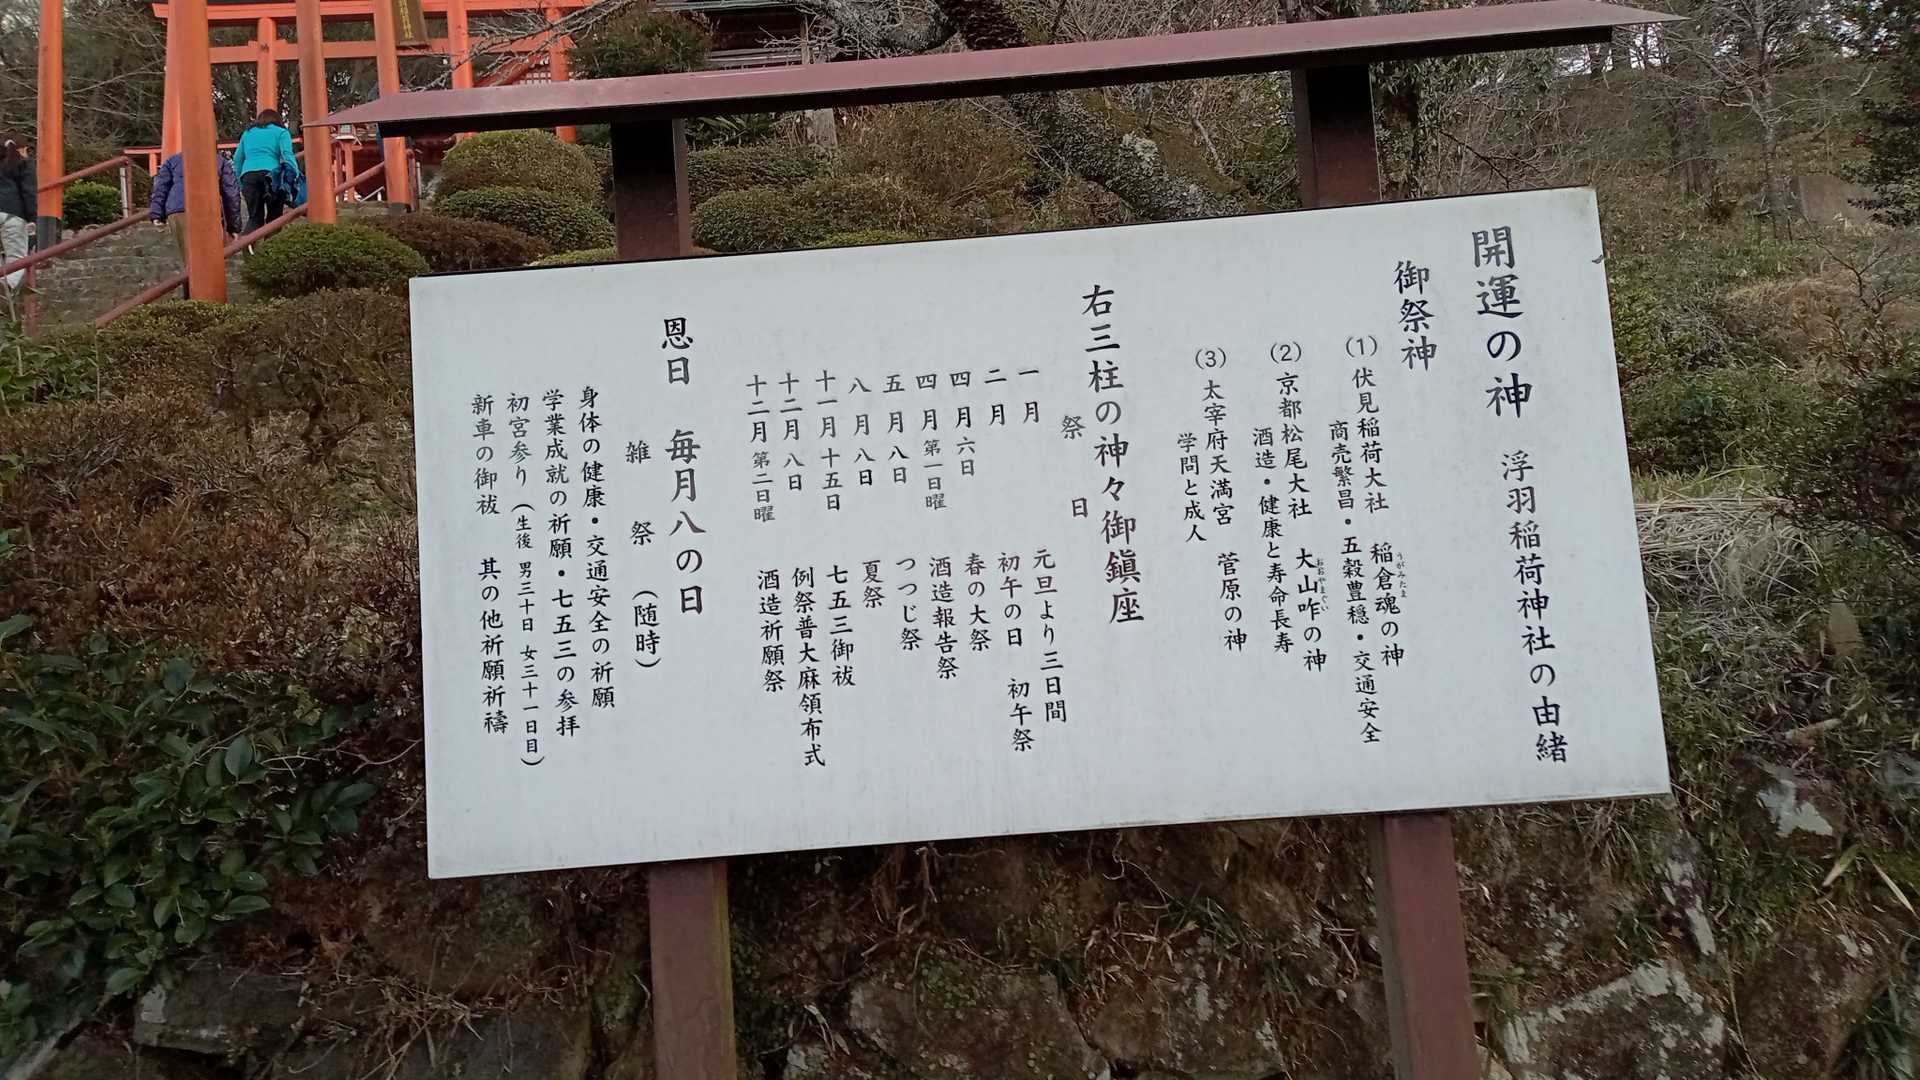 開運の神 浮羽稲荷神社の由緒
御祭神
(1) 伏見稲荷大社 稲倉魂の神
うがみたま
商売繁昌・五穀豊穏・交通安全
(2) 京都松尾大社 大山咋の神
おおやまぐい
酒造・健康と寿命長寿
(3) 太宰府天満宮 菅原の神
学問と成人
右三柱の神々御鎮座
祭日
一月 元旦より三日間
二月 初午の日 初午祭
四月六日 春の大祭
四月第一日曜 酒造報告祭
五月八日 つつじ祭
八月八日 夏祭
十一月十五日 七五三御祓
十二月八日 例祭普大麻領布式
十二月第二日曜 酒造祈願祭
恩日 毎月八の日
雑祭(随時)
身体の健康・交通安全の祈願
学業成就の祈願・七五三の参拝
初宮参り(生後 男三十日 女三十一日目)
新車の御祓 其の他祈願祈禱